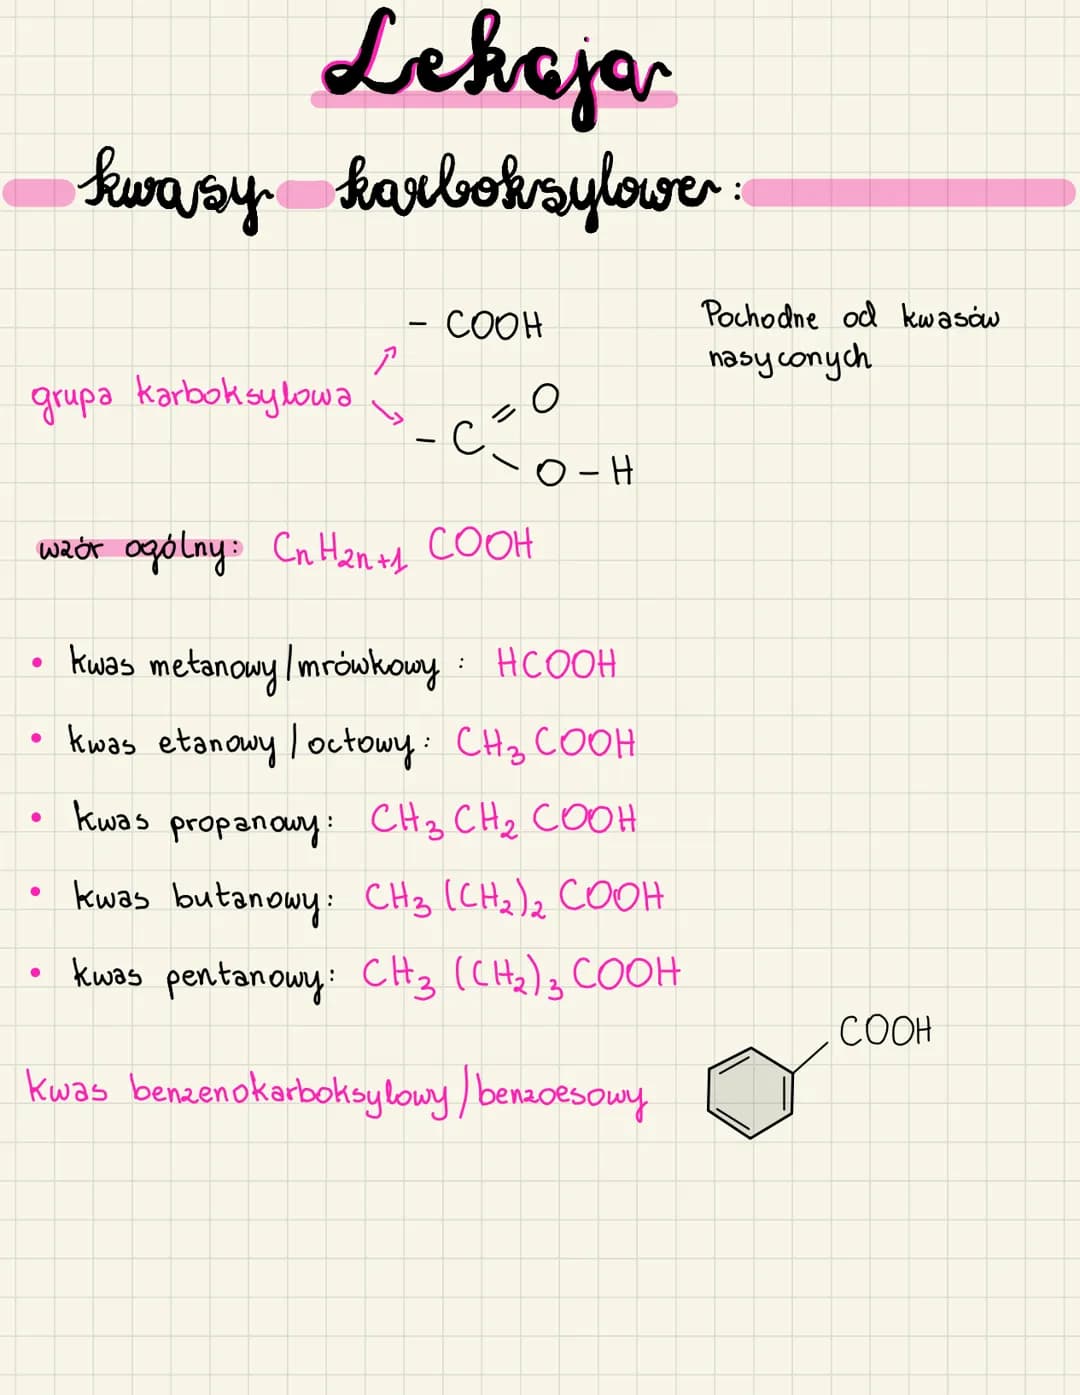 Lekcja
kwasy karboksylowe:
- COOH
Pochodne od kwasów
nasyconych
grupa karboksylowa
- C = O
O - H
wzór ogólny: CnH2n+1 COOH
• kwas metanowy/mrówkowy : HCOOH
• kwas etanowy / octowy: CH3 COOH
• kwas propanowy: CH3 CH2 COOH
• kwas butanowy: CH3 (CH2)2 COOH
• kwas pentanowy: CH3 (CH2)3 COOH
COOH
kwas benzenokarboksylowy/benzoesowy